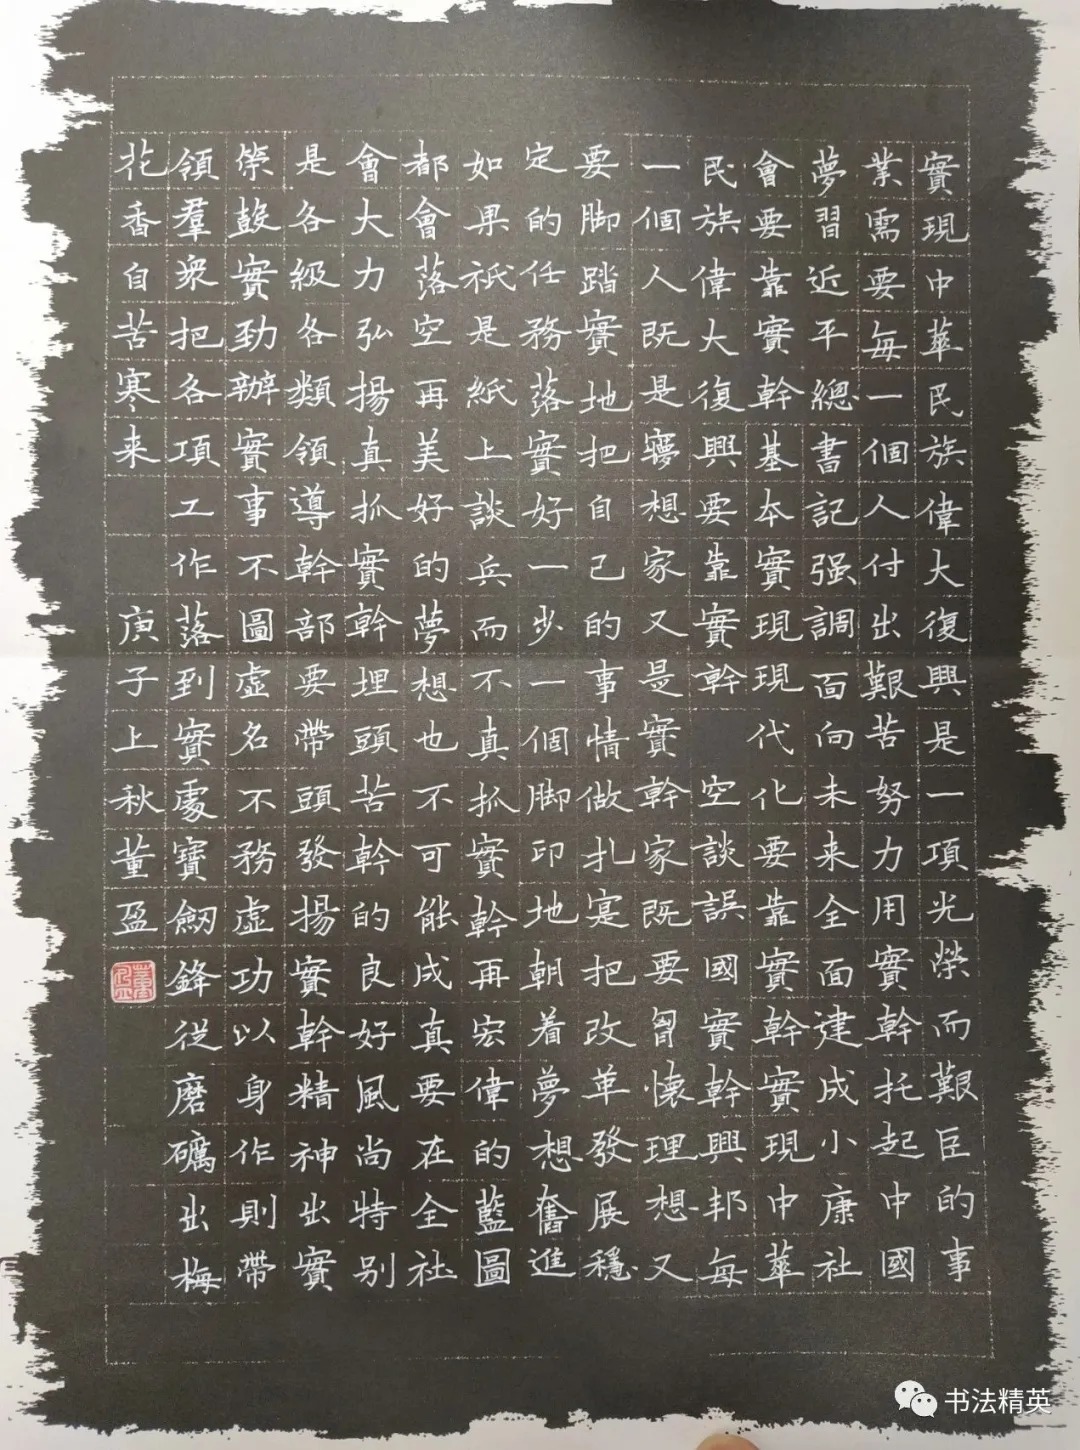 實現中華民族偉大復興是一項光榮而艱巨的事
業需要每一個人付出艱苦努力用實幹托起中國
夢習近平總書記强調面向未来全面建成小康社
會要靠實幹基本實現現代化要靠實幹實現中華
民族偉大復興要靠實幹 空談誤國實幹興邦每
一個人既是夢想家又是實幹家既要胷懷理想又
要脚踏實地把自己的事情做扎寔把改革發展穩
定的任務落實好一步一個脚印地朝着夢想奮進
如果祇是紙上談兵而不真抓實幹再宏偉的藍圖
都會落空再美好的夢想也不可能成真要在全社
會大力弘揚真抓實幹埋頭苦幹的良好風尚特别
是各級各類領導幹部要帶頭發揚實幹精神出實
策鼓實勁辦實事不圖虛名不務虛功以身作則帶
領羣衆把各項工作落到實處寶劒鋒從磨礪出梅
花香自苦寒来 庚子上秋董盈
董盈
书法精英